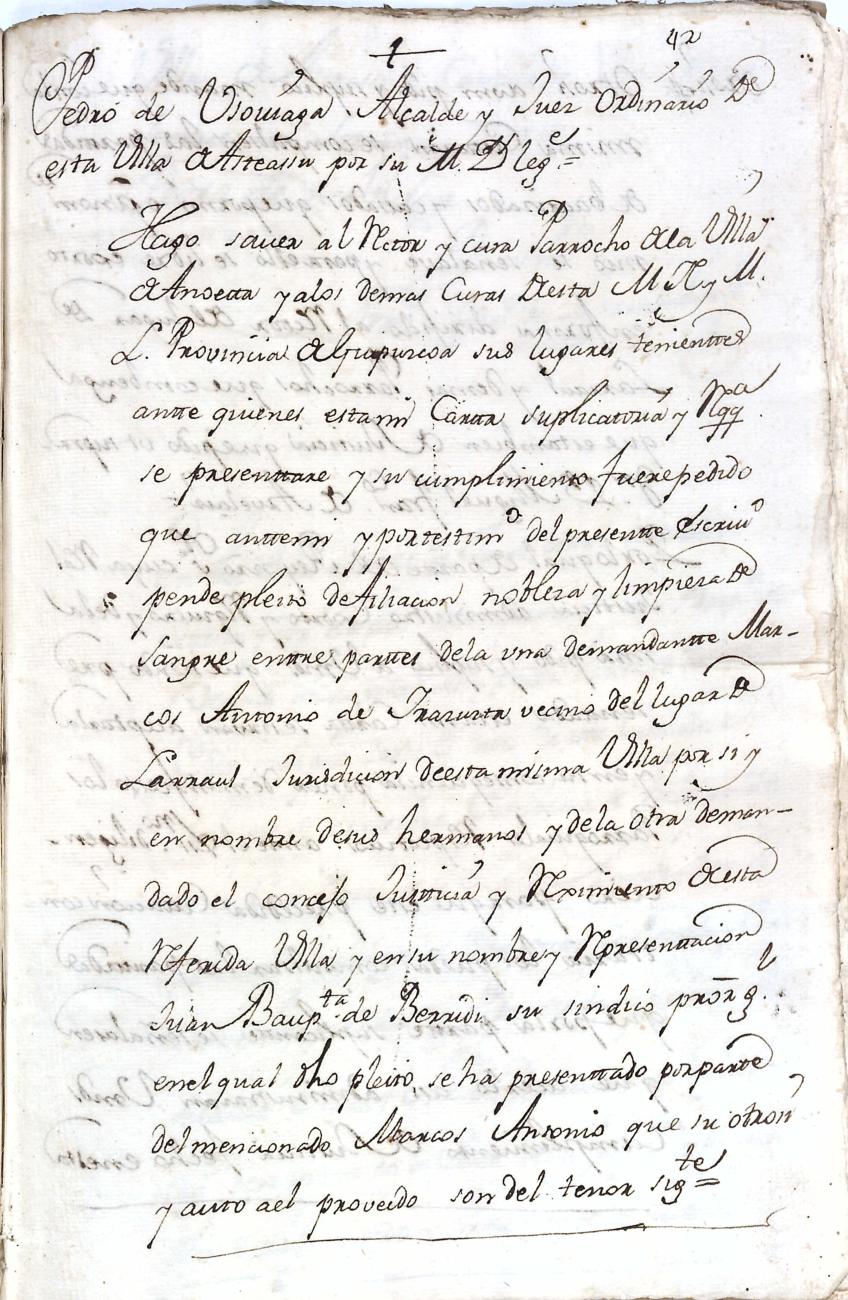 42
Pedro de Usoviaga Alcalde y Juez Ordinario De
esta Villa de Asteassu por su M. D leg.e =
Hago saver al Rector y cura Parrocho de la Villa
de Anoetta y alos demas Curas de esta M. N. y M.
L. Provincia de Guipuzcoa sus lugares tenienttes
antte quienes esta mi Cartta suplicatoria y Rqq.a
se presenttare y su cumplimiento fuere pedido
que anttemi y por testim.o del presentte Escriv.o
pende pleito de filiacion nobleza y limpieza de
sangre enttre parttes dela vna demandantte Mar-
cos Antonio de Irazuzta vecino del lugar de
Larraul Jurisdicion de esta misma Villa por si y
en nombre de sus hermanos y dela otra deman-
dado el concejo Justticia y Rximiento de esta
Rferida Villa y en su nombre y Rpresenttacion
Juan Bap.ta de Berridi su sindico pror. g.l
en el qual dho pleito, se ha presenttado por partte
del mencionado Marcos Antonio que su otrosi
y auto ael proveido son del tenor sig.te =